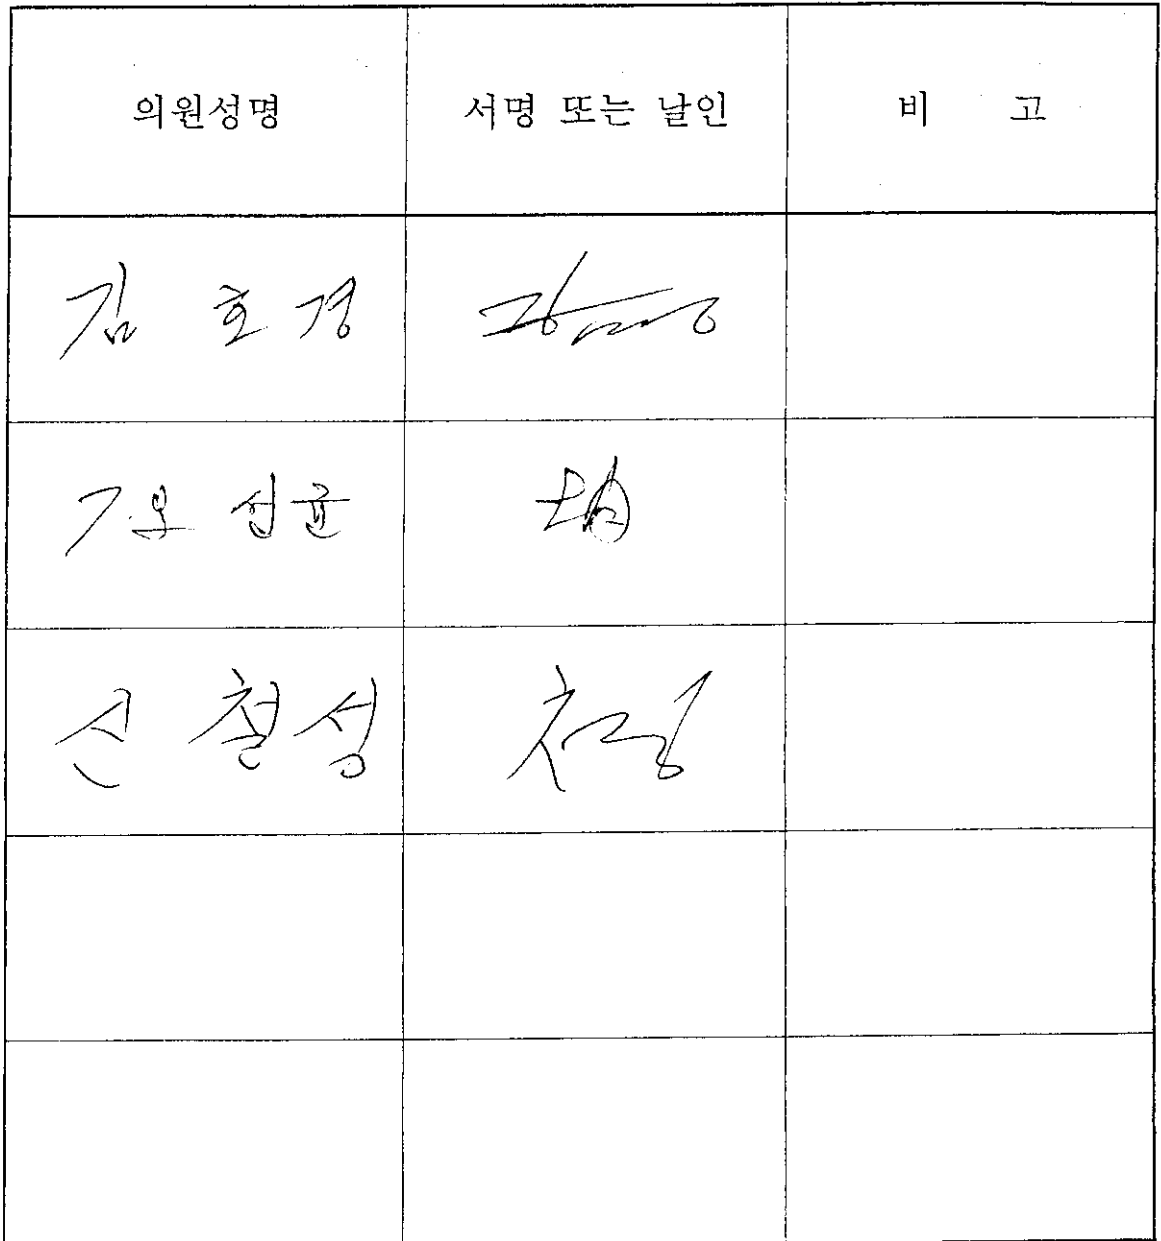 의원성명 서명 또는 날인 비 고
김 호 경
선균
신 철성